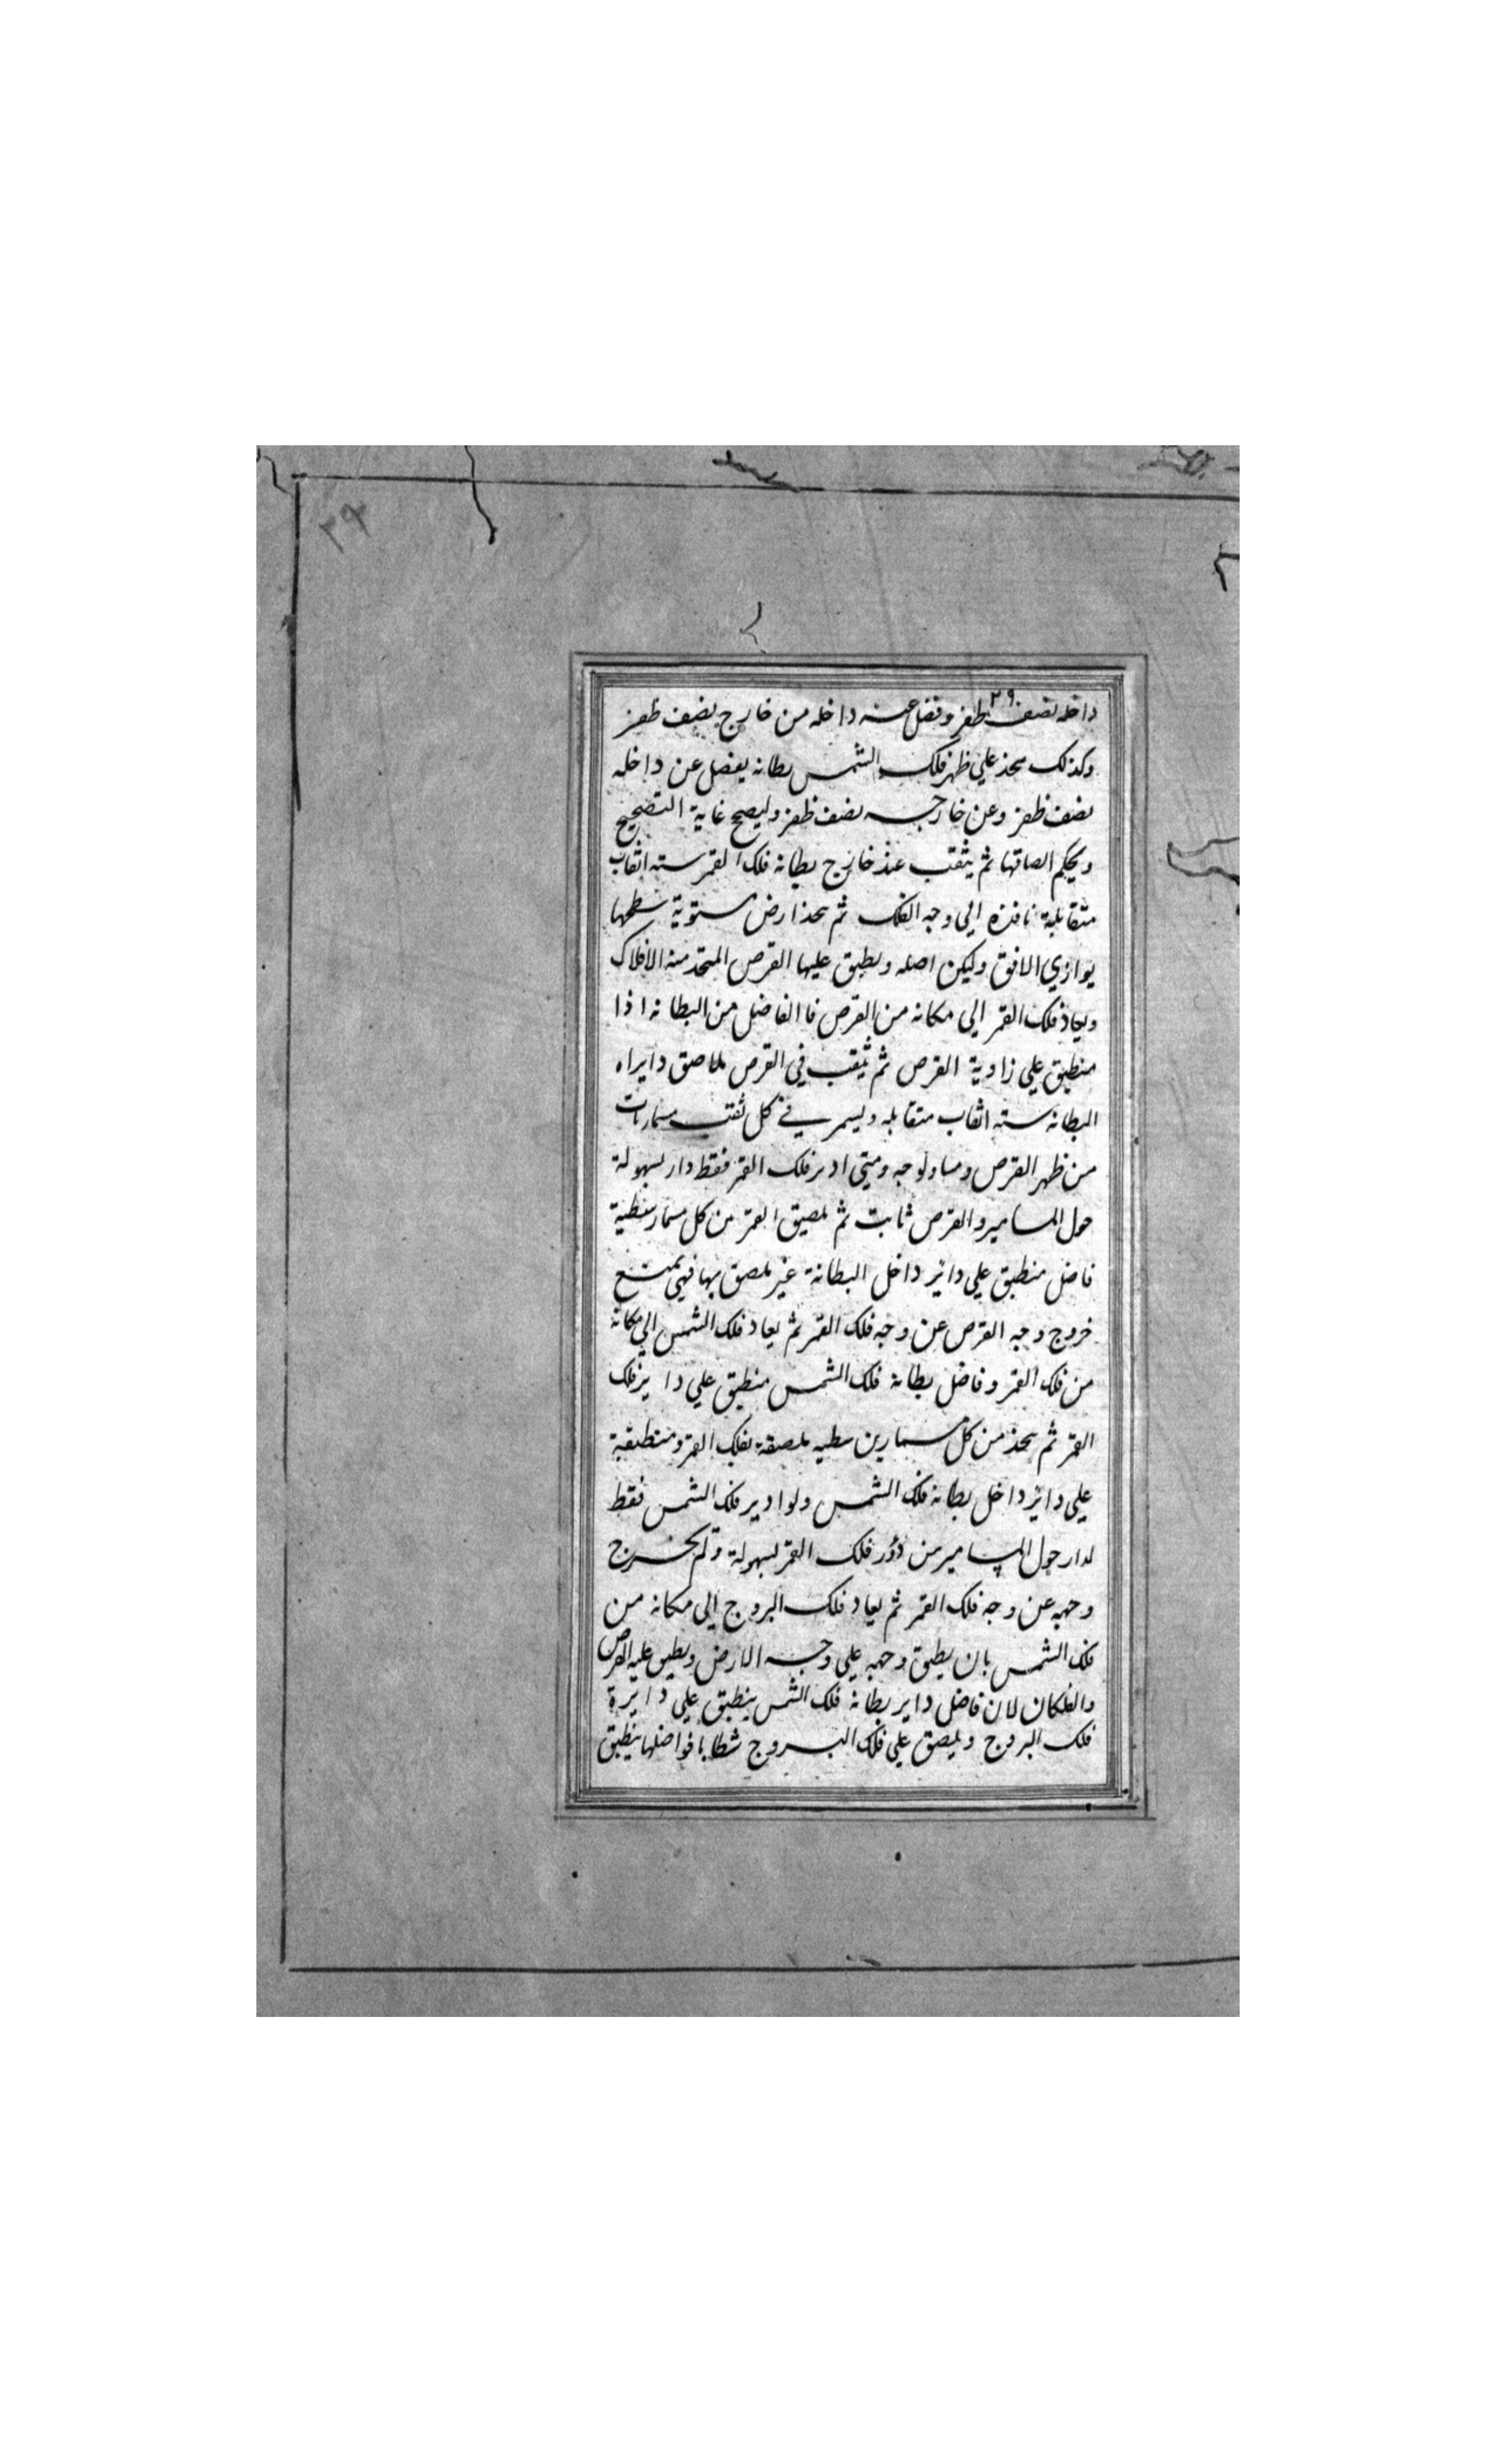 ٣٩
٢٩
داخله نصف ظفر وفضل عنه داخله من خارج نصف ظفر
وكذلك يتخذ علي ظهر فلك الشمس بطانه يفضل عن داخله
نصف ظفر وعن خارجه نصف ظفر وليصح غاية التصحيح
ويحكم الصاقها ثم يثقب عند خارج بطانة فلك القمر سته اثقاب
متقابلة نافذه الي وجه الفلك ثم يتخذ ارض مستوية سطحها
يوازي الافق وليكن اصله ويطبق عليها القرص المتخذ منه الافلاك
ويعاد فلك القمر الي مكانه من القرص فا الفاضل من البطانه اذا
منطبق علي زاوية القرص ثم يثقب في القرص ملاصق دايراه
البطانه سته اثقاب متقابله ويسمر في كل ثقب مسمار
من ظهر القرص ومساو لوجه ومتي ادير فلك القمر فقط دار بسهولة
حول المسامير والقرص ثابت ثم يلصق القمر من كل مسمار شظية
فاضل منطبق علي دائر داخل البطانة غير ملصق بها فهي تمنع
خروج وجه القرص عن وجه فلك القمر ثم يعاد فلك الشمس الي مكانه
من فلك القمر وفاضل بطانة فلك الشمس منطبق علي داير فلك
القمر ثم يتخذ من كل مسمارين شظيه ملصقة بفلك القمر ومنطبقة
علي دائر داخل بطانة فلك الشمس ولو ادير فلك الشمس فقط
لدار حول المسامير من دور فلك القمر بسهولة ولم يخرج
وجهه عن وجه فلك القمر ثم يعاد فلك البروج الي مكانه من
فلك الشمس بان يطبق وجهه علي وجه الارض ويطبق عليه القرص
والفلكان لان فاضل داير بطانة فلك الشمس ينطبق علي دايرة
فلك البروج ويلصق علي فلك البروج شظايا فواضلها ينطبق